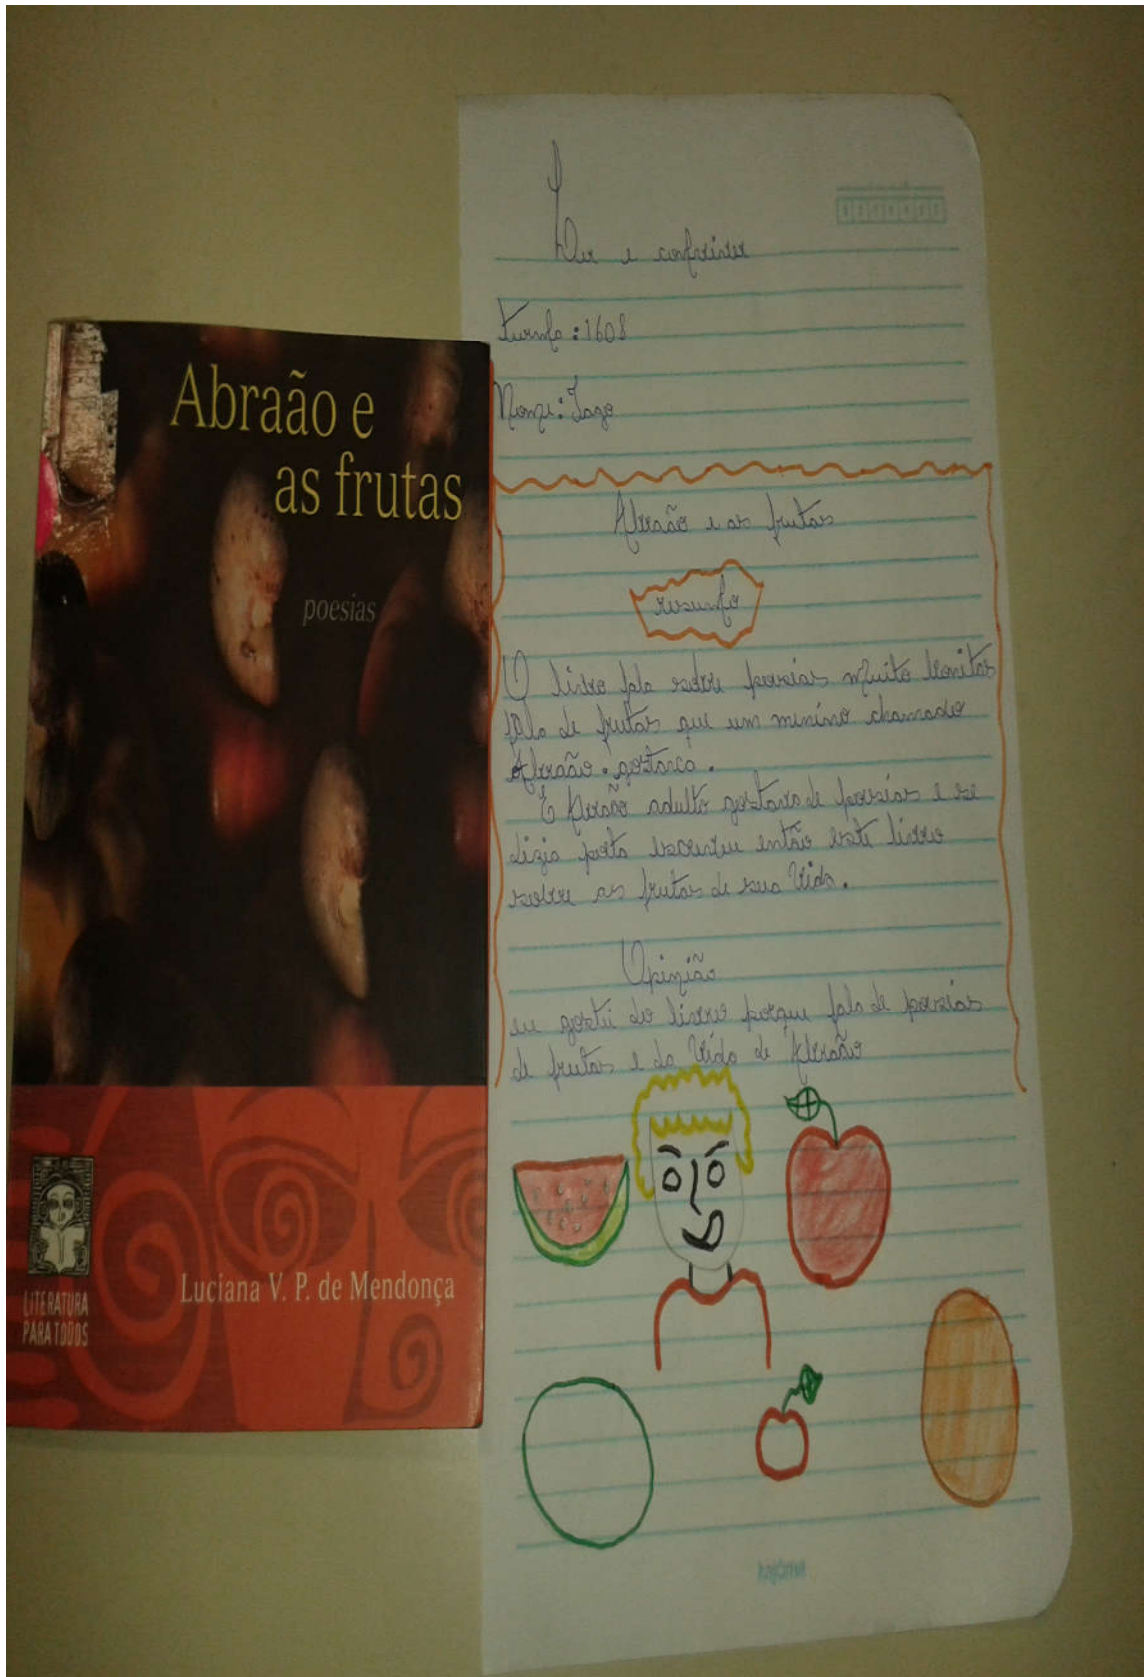 Abraão e
as frutas
poesias
Luciana V. P. de Mendonça
LITERATURA
PARA TODOS
Ler e
turma: 1608
Nome: Iago
Abraão e as frutas
resumo
O livro fala sobre poesias muito bonitas
fala de frutas que um menino chamado
Abraão. gostava.
E Abraão adulto gostava de poesias e se
dizia poeta escreveu então este livro
sobre as frutas de sua vida.
Opinião
eu gostei do livro porque fala de poesias
de frutas e da vida de Abraão